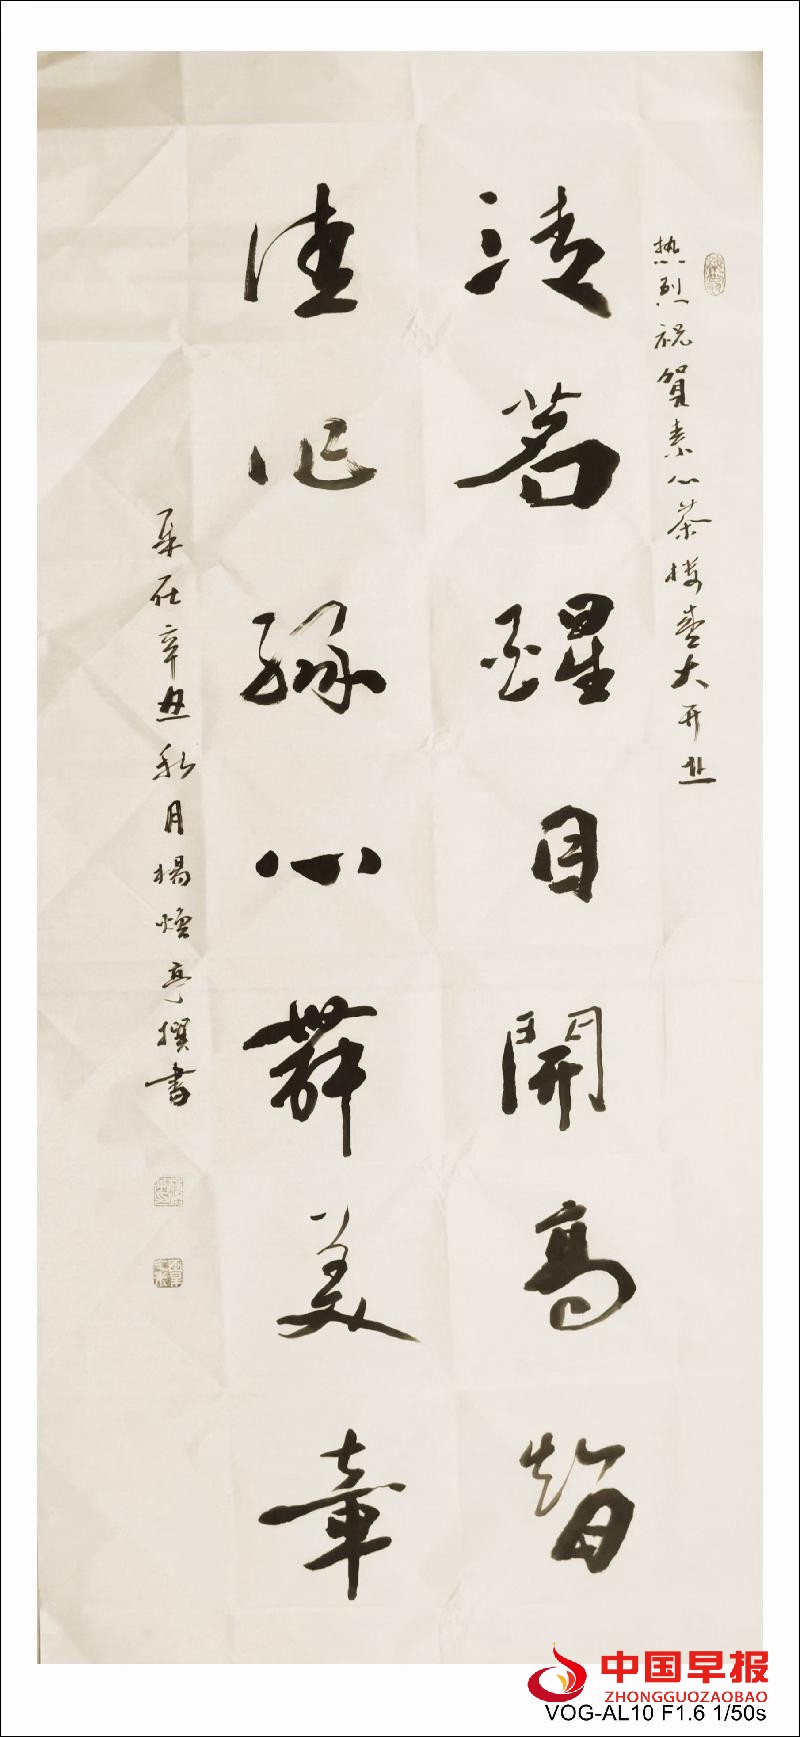 热烈祝贺素心茶楼盛大开业
清茗醒目開高智
佳作緣心舞美章
在辛丑秋月楊亭撰書
中国早报
ZHONGGUOZAOBAO
VOG-AL10 F1.6 1/50s